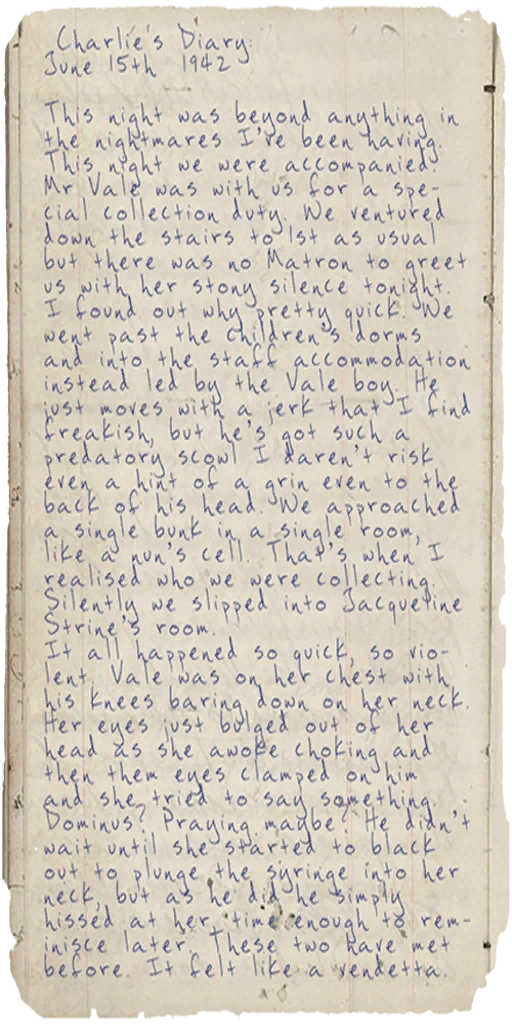 Charlie's Diary
June 15th 1942
This night was beyond anything in
the nightmares I've been having.
This night we were accompanied.
Mr Vale was with us for a spe-
cial collection duty. We ventured
down the stairs to 1st as usual
but there was no Matron to greet
us with her stony silence tonight.
I found out why pretty quick. We
went past the children's dorms
and into the staff accommodation
instead led by the Vale boy. He
just moves with a jerk that I find
freakish, but he's got such a
predatory scowl I daren't risk
even a hint of a grin even to the
back of his head. We approached
a single bunk in a single room,
like a nun's cell. That's when I
realised who we were collecting.
Silently we slipped into Jacqueline
Strine's room.
It all happened so quick, so vio-
lent. Vale was on her chest with
his knees baring down on her neck.
Her eyes just bulged out of her
head as she awoke choking and
then them eyes clamped on him
and she tried to say something.
Dominus? Praying maybe? He didn't
wait until she started to black
out to plunge the syringe into her
neck, but as he did he simply
hissed at her, time enough to rem-
inisce later. These two have met
before. It felt like a vendetta.